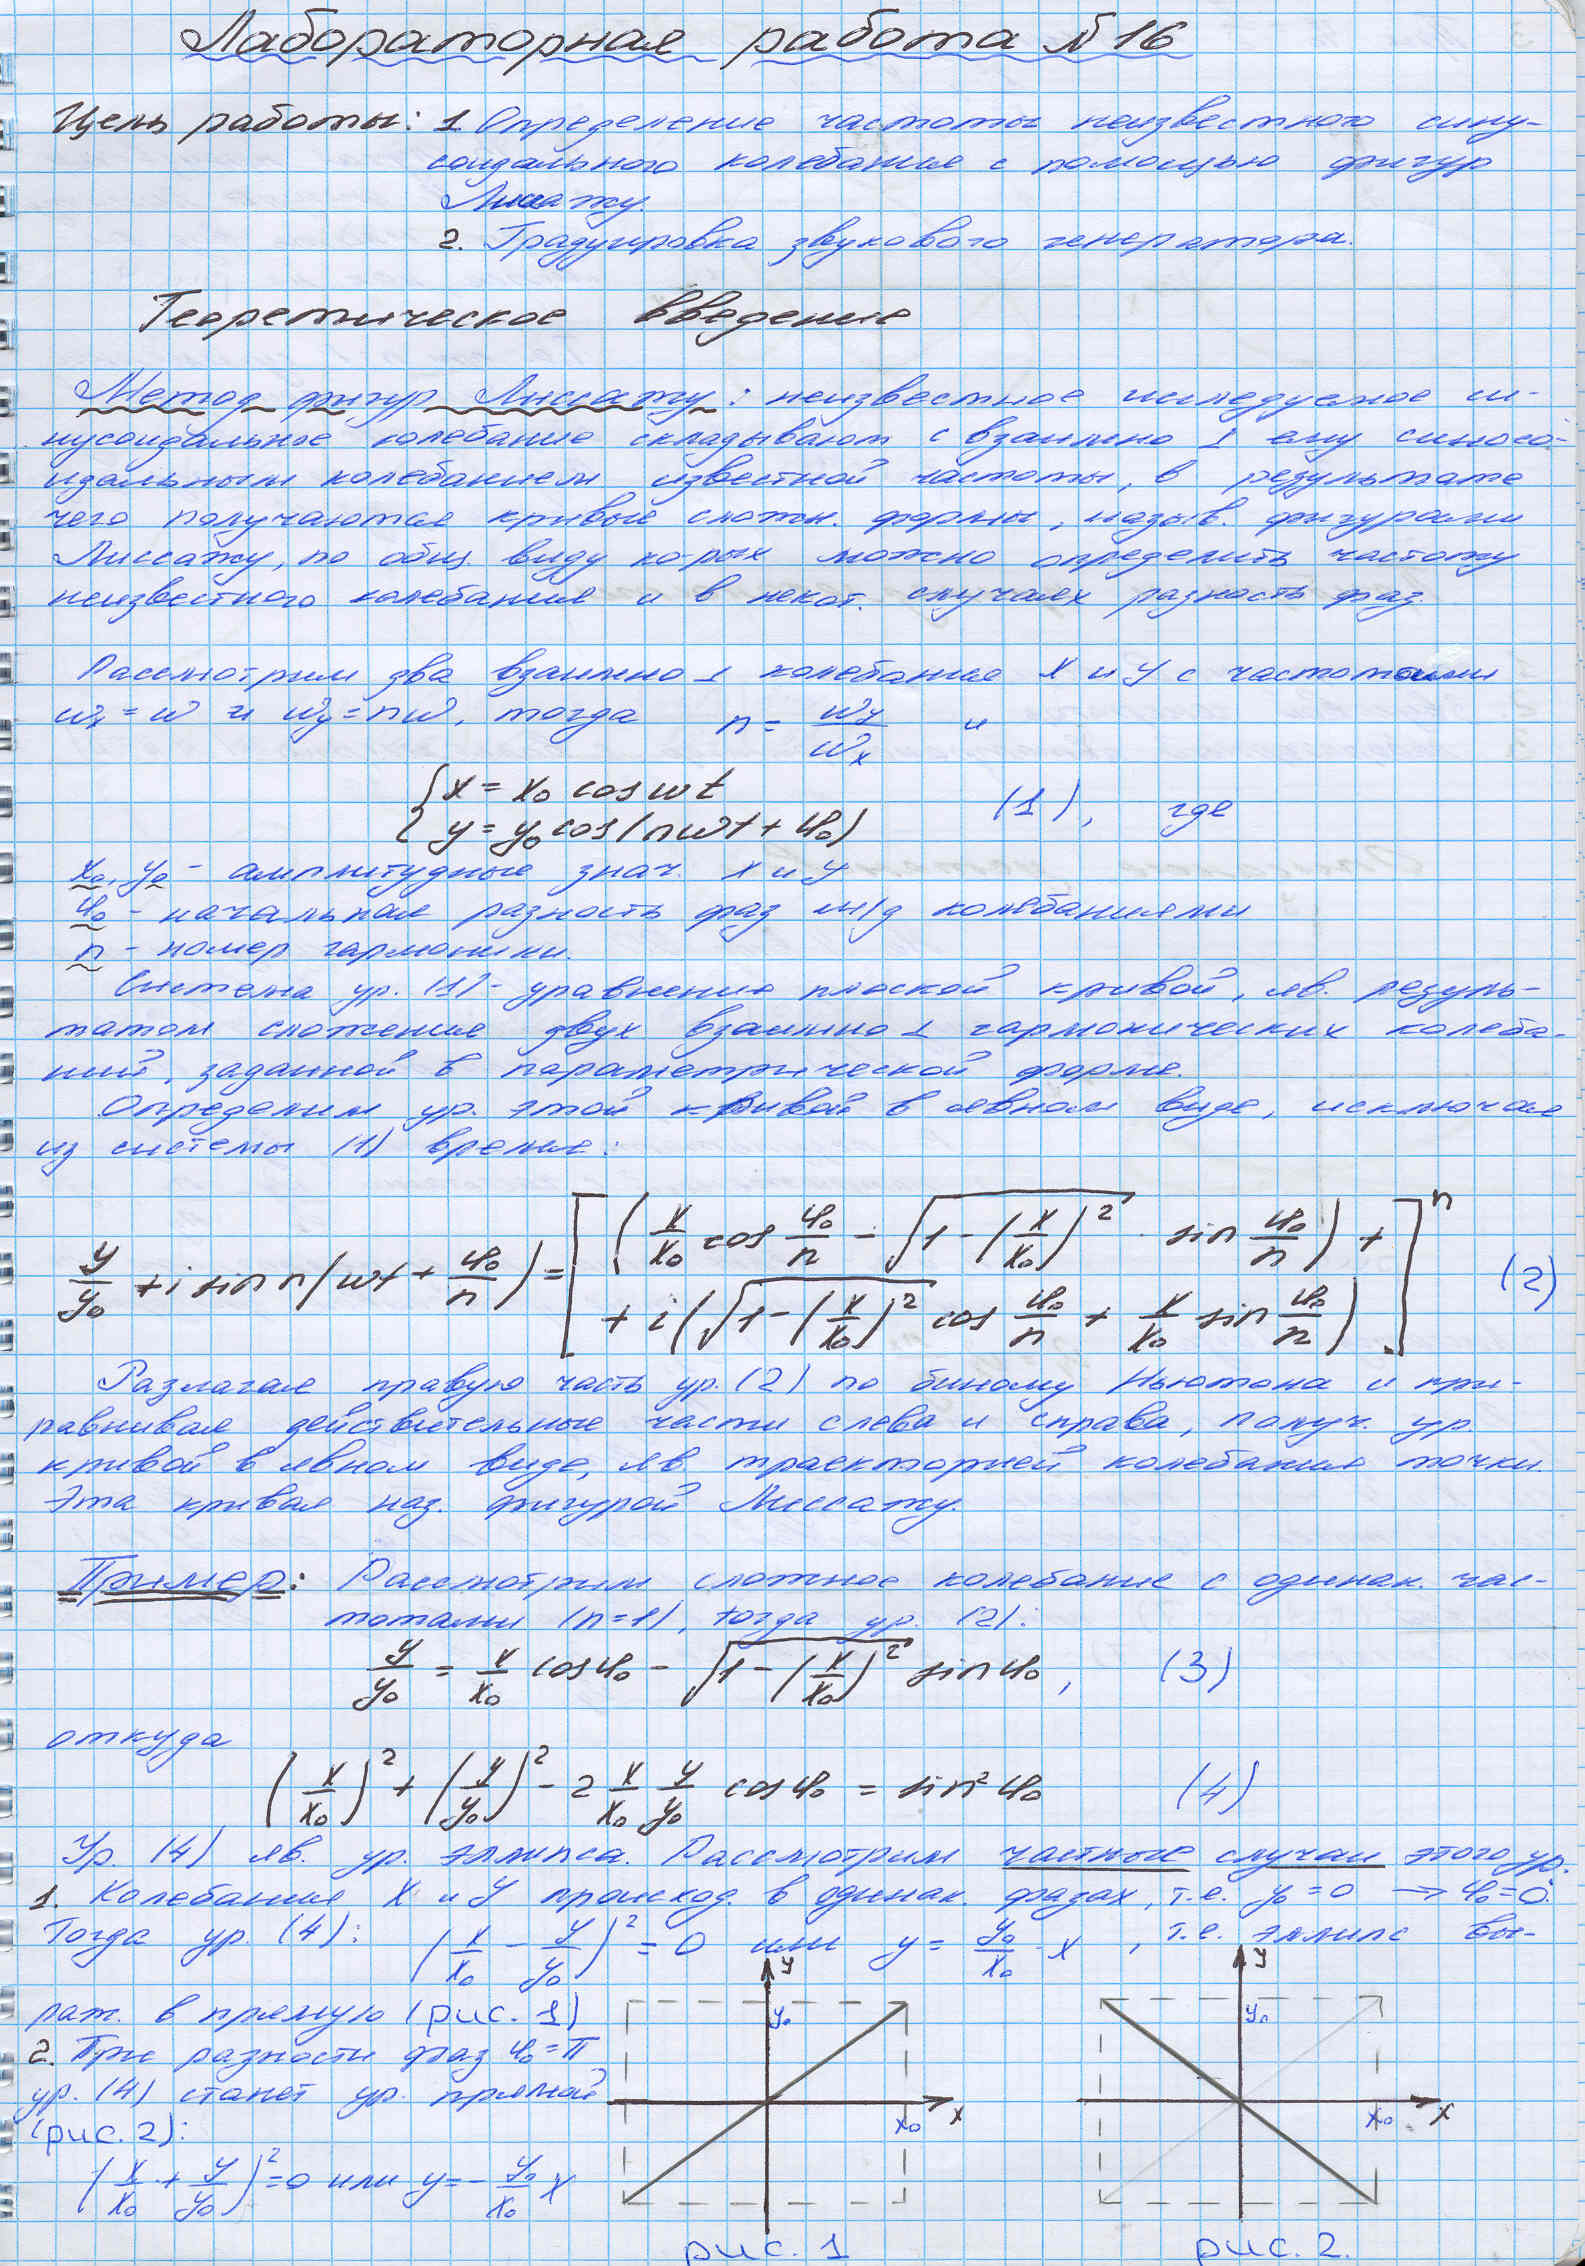 Лабораторная работа №16
Цель работы: 1. Определение частоты неизвестного сину-
соидального колебания с помощью фигур
Лиссажу.
2. Градуировка звукового генератора.
Теоретическое введение
Метод фигур Лиссажу: неизвестное исследуемое си-
нусоидальное колебание складывают с взаимно ⊥ ему синосо-
идальным колебанием известной частоты, в результате
чего получаются кривые сложн. формы, назыв. фигурами
Лиссажу, по общ. виду ко-рых можно определить частоту
неизвестного колебания и в некот. случаях разность фаз.
Рассмотрим два взаимно ⊥ колебания X и Y с частотами
ωx = ω и ωy = nω, тогда n = ωy/ωx и
{ x = x₀ cos ωt
y = y₀ cos(nωt + φ₀) (1), где
x₀, y₀ - амплитудные знач. X и Y
φ₀ - начальная разность фаз м/д колебаниями
n - номер гармоники.
Система ур. (1) - уравнение плоской кривой, яв. резуль-
татом сложения двух взаимно ⊥ гармонических колеба-
ний, заданной в параметрической форме.
Определим ур. этой кривой в явном виде, исключая
из системы (1) время:
y/y₀ + i sin n(ωt + φ₀/n) = [ (x/x₀ cos φ₀/n - √(1 - (x/x₀)²) · sin φ₀/n) +
+ i(√(1 - (x/x₀)²) cos φ₀/n + x/x₀ sin φ₀/n) ]ⁿ (2)
Разлагая правую часть ур. (2) по биному Ньютона и при-
равнивая действительные части слева и справа, получ. ур.
кривой в явном виде, яв. траекторией колебания точки.
Эта кривая наз. фигурой Лиссажу.
Пример: Рассмотрим сложное колебание с одинак. час-
тотами (n=1), тогда ур. (2):
y/y₀ = x/x₀ cos φ₀ - √(1 - (x/x₀)²) sin φ₀, (3)
откуда
(x/x₀)² + (y/y₀)² - 2 x/x₀ y/y₀ cos φ₀ = sin² φ₀ (4)
Ур. (4) яв. ур. эллипса. Рассмотрим частные случаи этого ур.
1. Колебания X и Y происход. в одинак. фазах, т.е. y₀ = 0 → φ₀ = 0.
Тогда ур. (4): (x/x₀ - y/y₀)² = 0 или y = y₀/x₀ · x, т.е. эллипс вы-
раж. в прямую (рис. 1)
2. При разности фаз φ₀ = π
ур. (4) станет ур. прямой
(рис. 2):
(x/x₀ + y/y₀)² = 0 или y = - y₀/x₀ x
y
y₀
x₀
x
рис. 1
y
y₀
x₀
x
рис. 2.